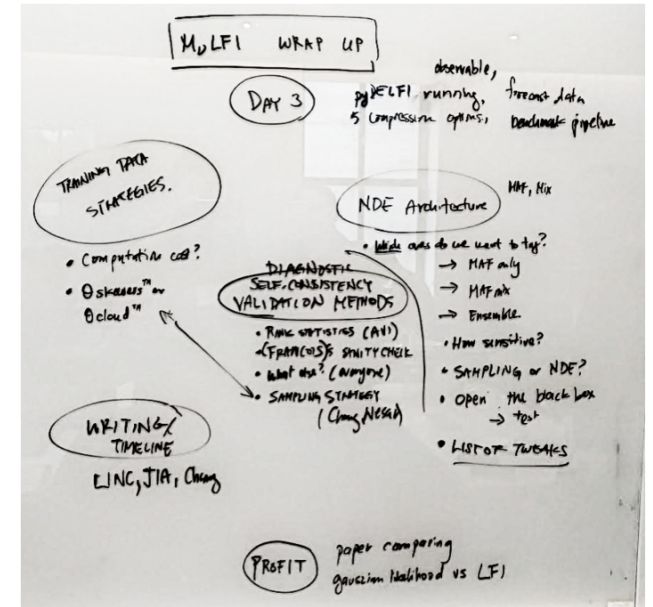 MνLFI WRAP UP
DAY 3
observable,
pyDELFI running, forecast data
5 compression options, benchmark pipeline
TRAINING DATA
STRATEGIES.
• Computation cost?
• θ skewers™ or
θ cloud™
NDE Architecture
MAF, Mix
• Which ones do we want to try?
→ MAF only
→ MAF mix
→ Ensemble
• How sensitive?
• SAMPLING or NDE?
• Open the black box
→ test
• LIST OF TWEAKS
DIAGNOSTIC
SELF-CONSISTENCY
VALIDATION METHODS
• RANK STATISTICS (AVI)
• (FRANCOIS)'S SANITY CHECK
• What else? (everyone)
• SAMPLING STRATEGY
(Chang,
WRITING/
TIMELINE
LINC, JIA, Chang
PROFIT
paper comparing
gaussian likelihood vs LFI